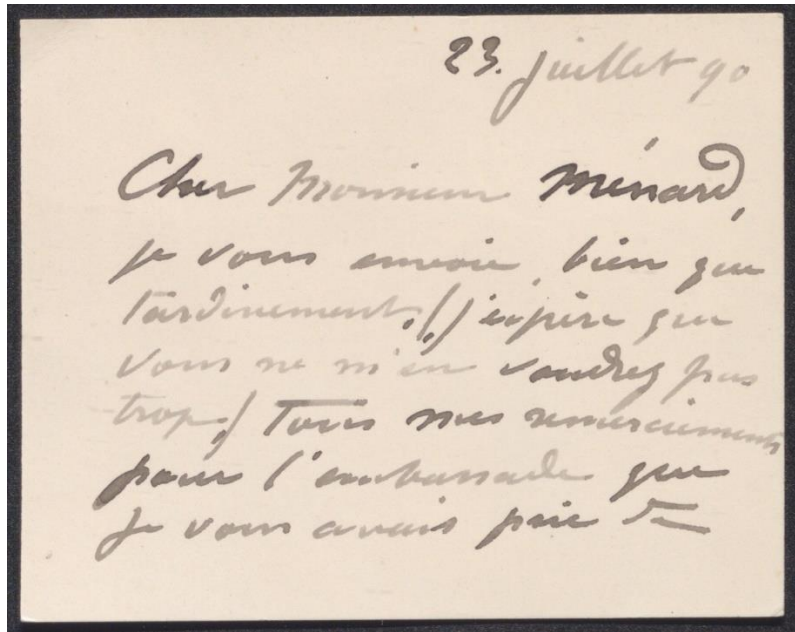 23. juillet 90
Cher Monsieur Ménard,
je vous envoie, bien que
tardivement, (j'espère que
vous ne m'en voudrez pas
trop,) tous mes remerciements
pour l'ambassade que
je vous avais prié de